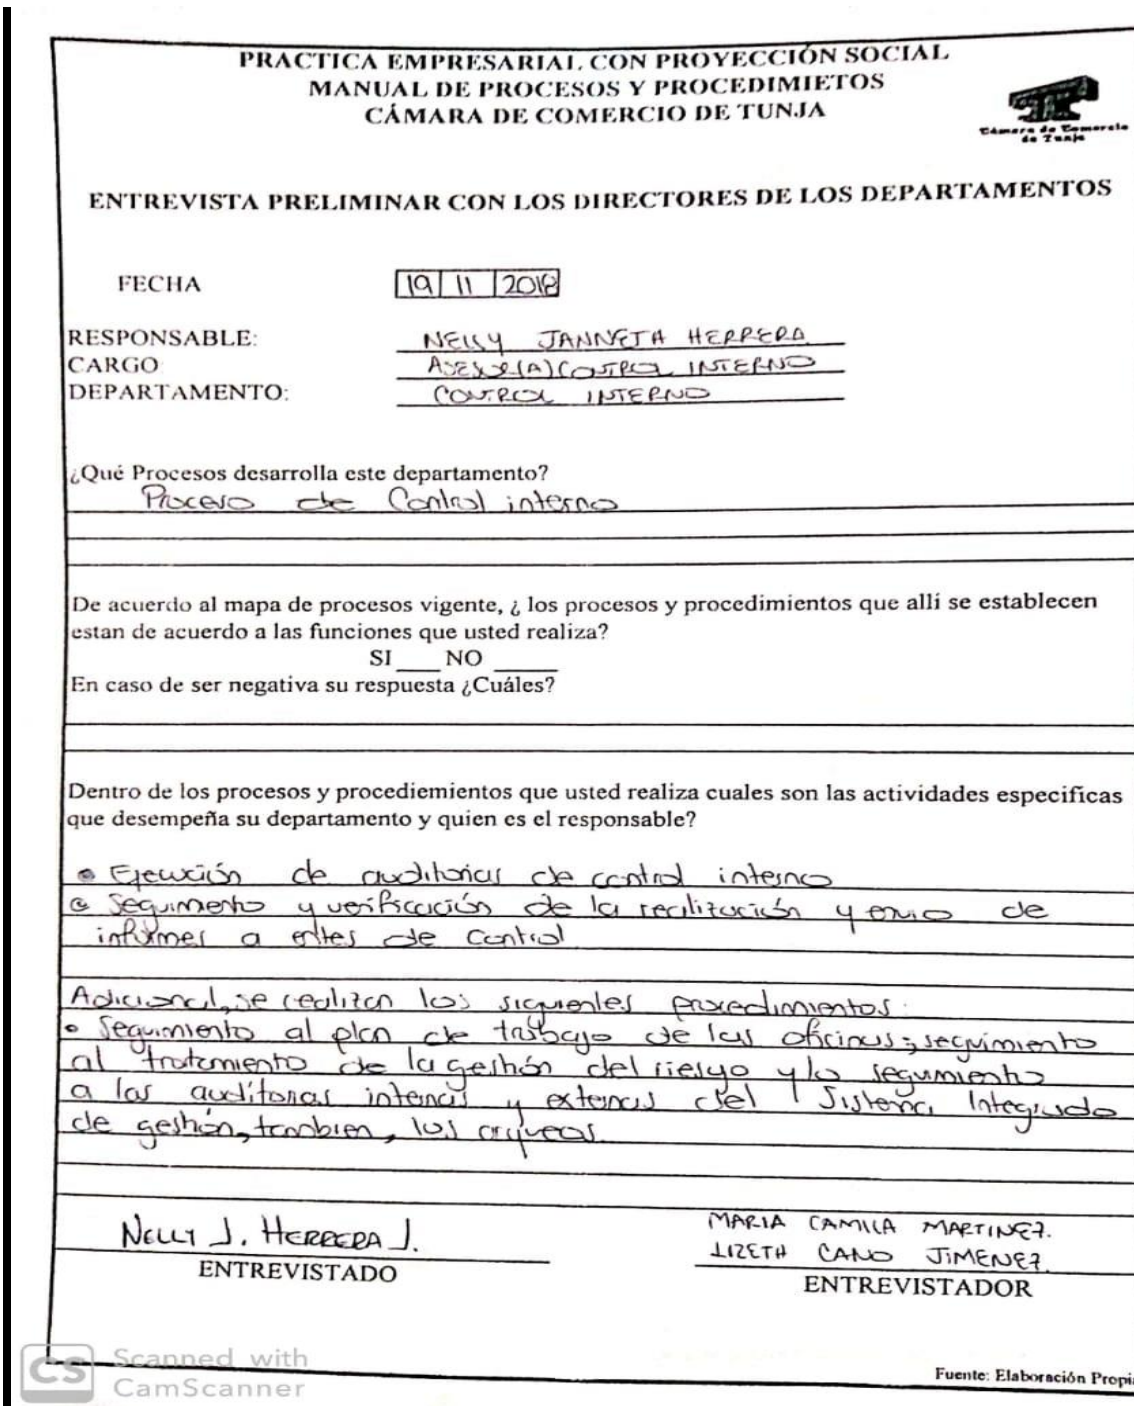 PRACTICA EMPRESARIAL CON PROYECCIÓN SOCIAL
MANUAL DE PROCESOS Y PROCEDIMIETOS
CÁMARA DE COMERCIO DE TUNJA
Cámara de Comercio
de Tunja
ENTREVISTA PRELIMINAR CON LOS DIRECTORES DE LOS DEPARTAMENTOS
FECHA 19 11 2018
RESPONSABLE: NELLY JANNETH HERRERA
CARGO: ASESOR(A) CONTROL INTERNO
DEPARTAMENTO: CONTROL INTERNO
¿Qué Procesos desarrolla este departamento?
Proceso de Control interno
De acuerdo al mapa de procesos vigente, ¿ los procesos y procedimientos que allí se establecen
estan de acuerdo a las funciones que usted realiza?
SI ___ NO ____
En caso de ser negativa su respuesta ¿Cuáles?
Dentro de los procesos y procediemientos que usted realiza cuales son las actividades especificas
que desempeña su departamento y quien es el responsable?
• Ejecución de auditorias de control interno
• Seguimento y verificación de la realización y envio de
informes a entes de control
Adicional, se realizan los siguientes procedimientos:
• Seguimiento al plan de trabajo de las oficinas; seguimiento
al tratamiento de la gestión del riesgo y lo seguimiento
a las auditorias internas y externas del Sistema Integrado
de gestión, tambien, los arqueos.
NELLY J. HERRERA J.
ENTREVISTADO
MARIA CAMILA MARTINEZ.
LIZETH CANO JIMENEZ.
ENTREVISTADOR
CS Scanned with
CamScanner
Fuente: Elaboración Propi